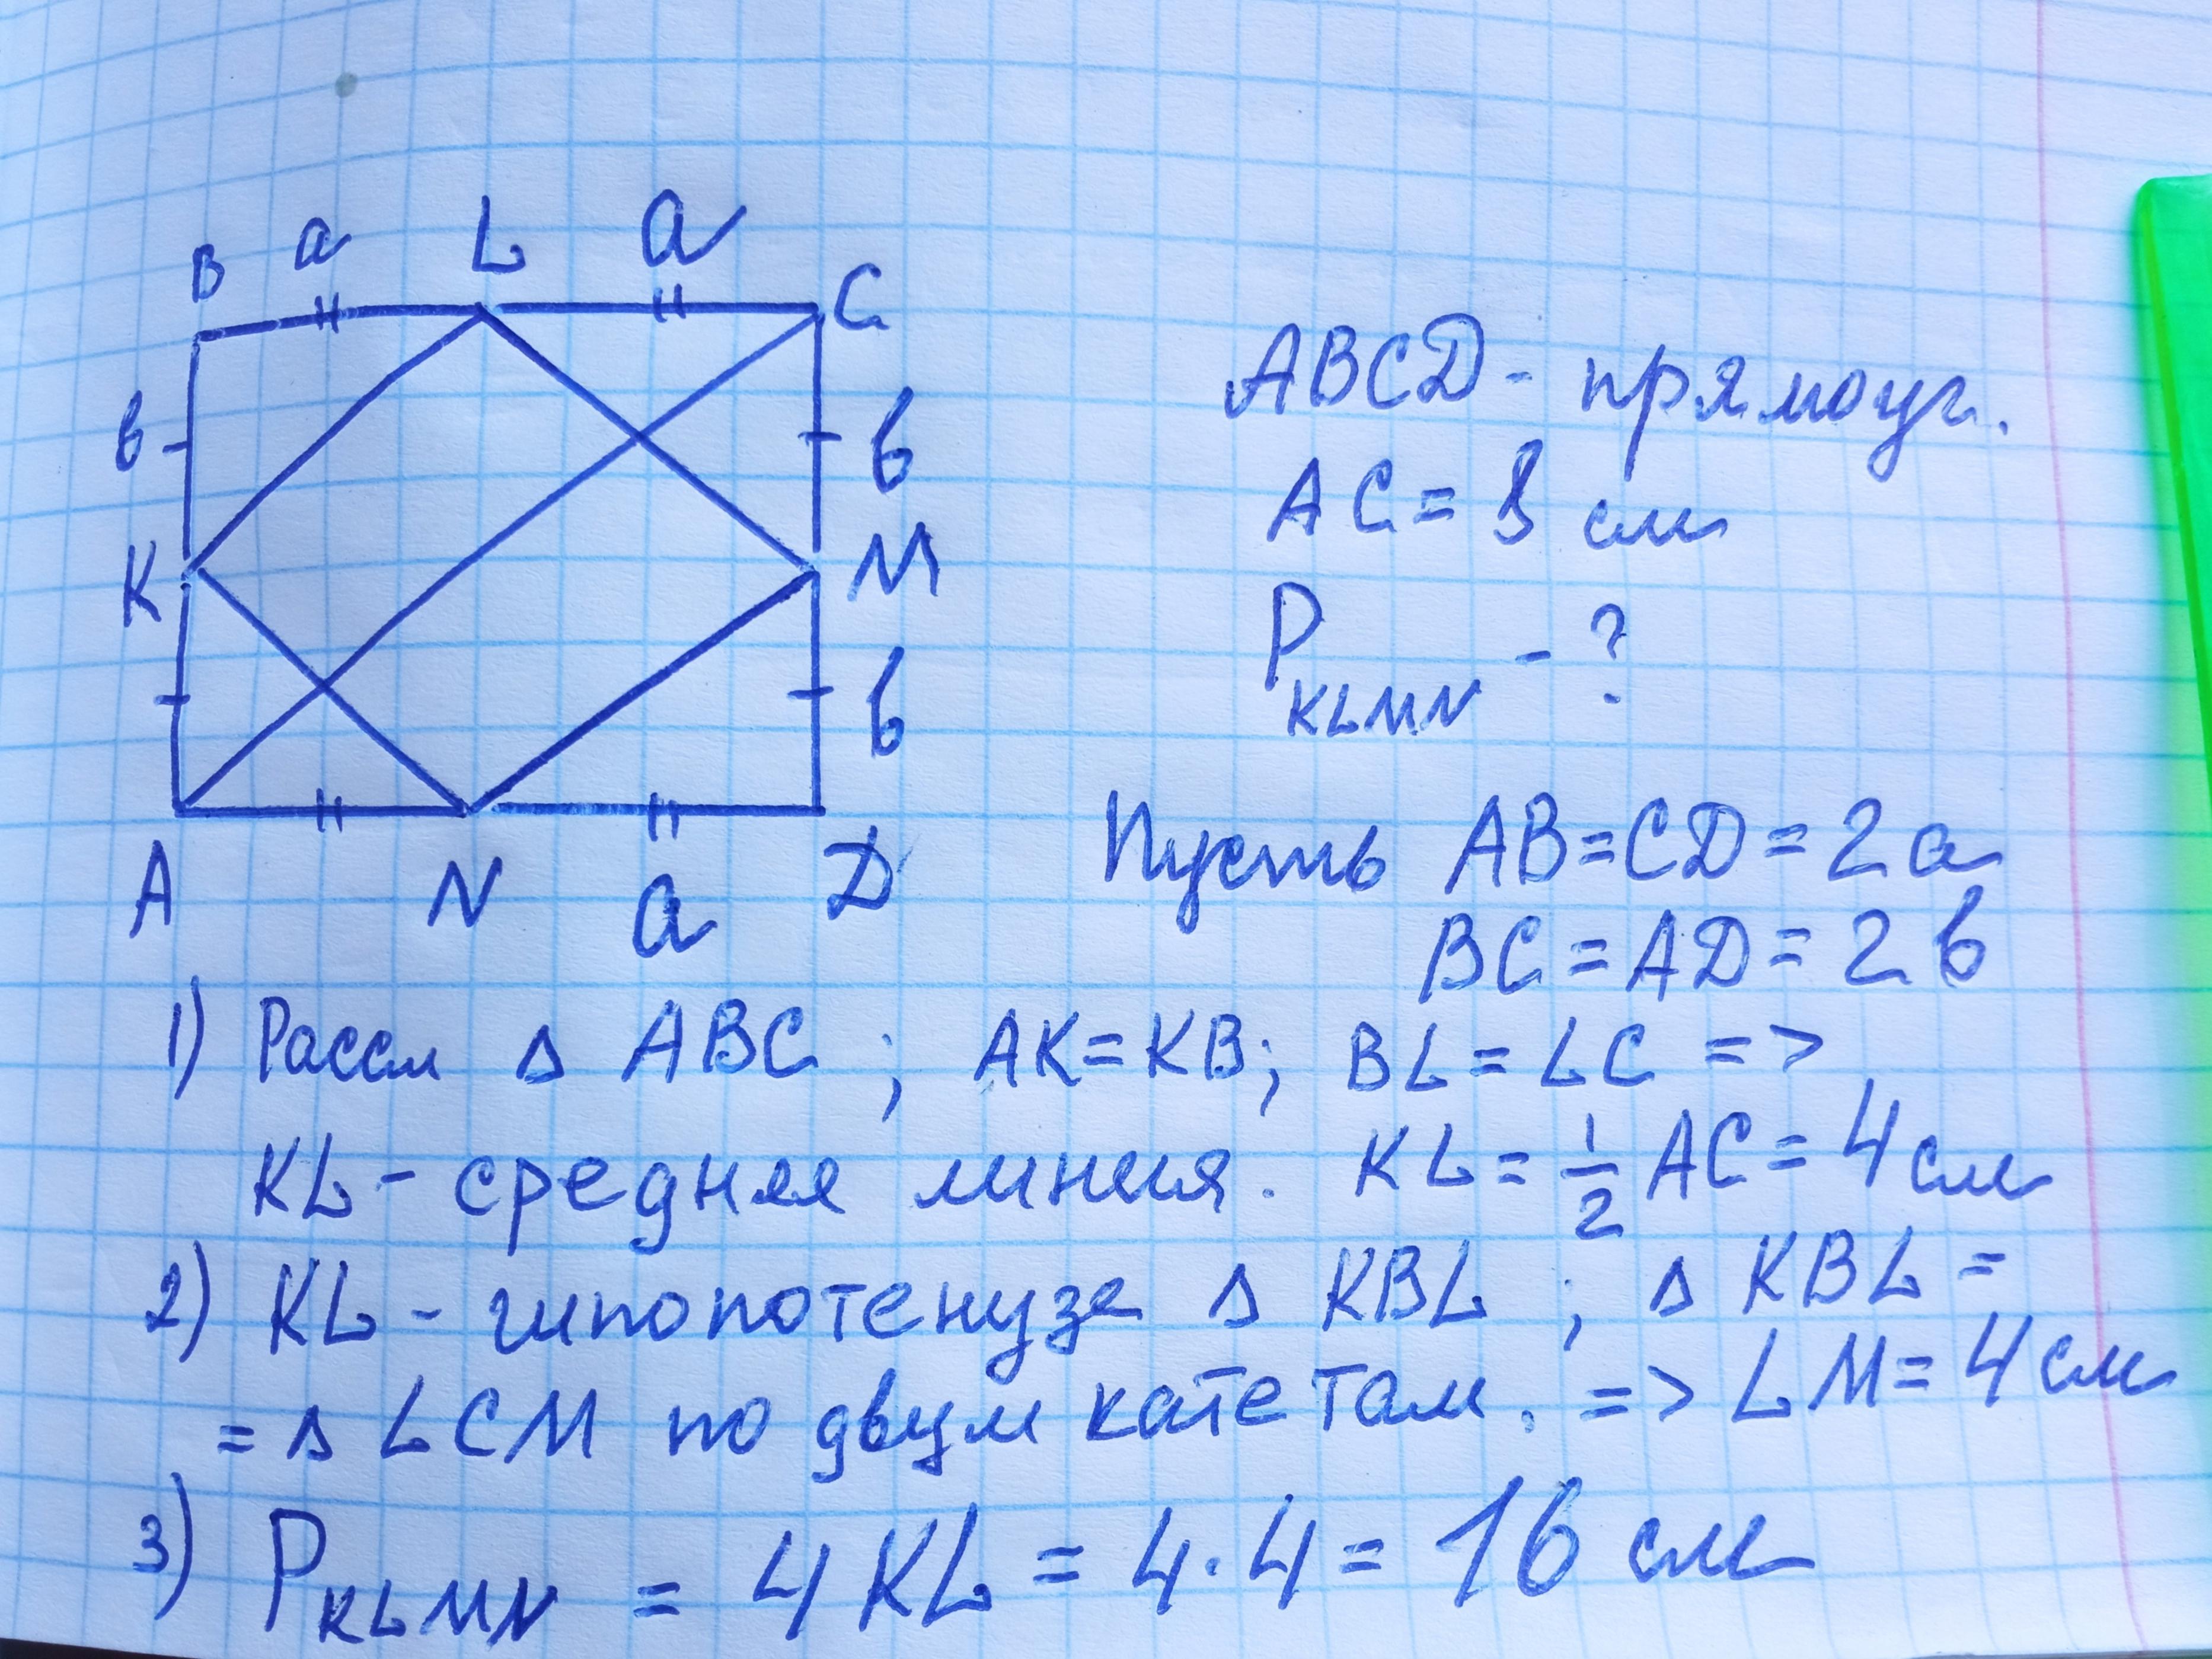 B a L a C
в в
K M
в
A N a D
ABCD - прямоуг.
AC = 8 см
P KLMN - ?
Пусть AB = CD = 2a
BC = AD = 2в
1) Рассм Δ ABC ; AK = KB; BL = LC =>
KL - средняя линия. KL = 1/2 AC = 4 см
2) KL - гипопотенуза Δ KBL ; Δ KBL =
= Δ LCM по двум катетам. => LM = 4 см
3) P KLMN = 4 KL = 4 · 4 = 16 см